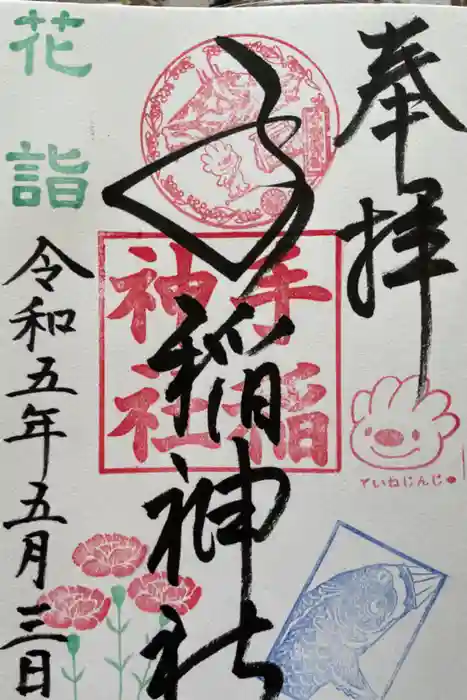 奉拝
手稲神社
手稲
神社
ていねじんじゃ
令和五年五月三日
花詣